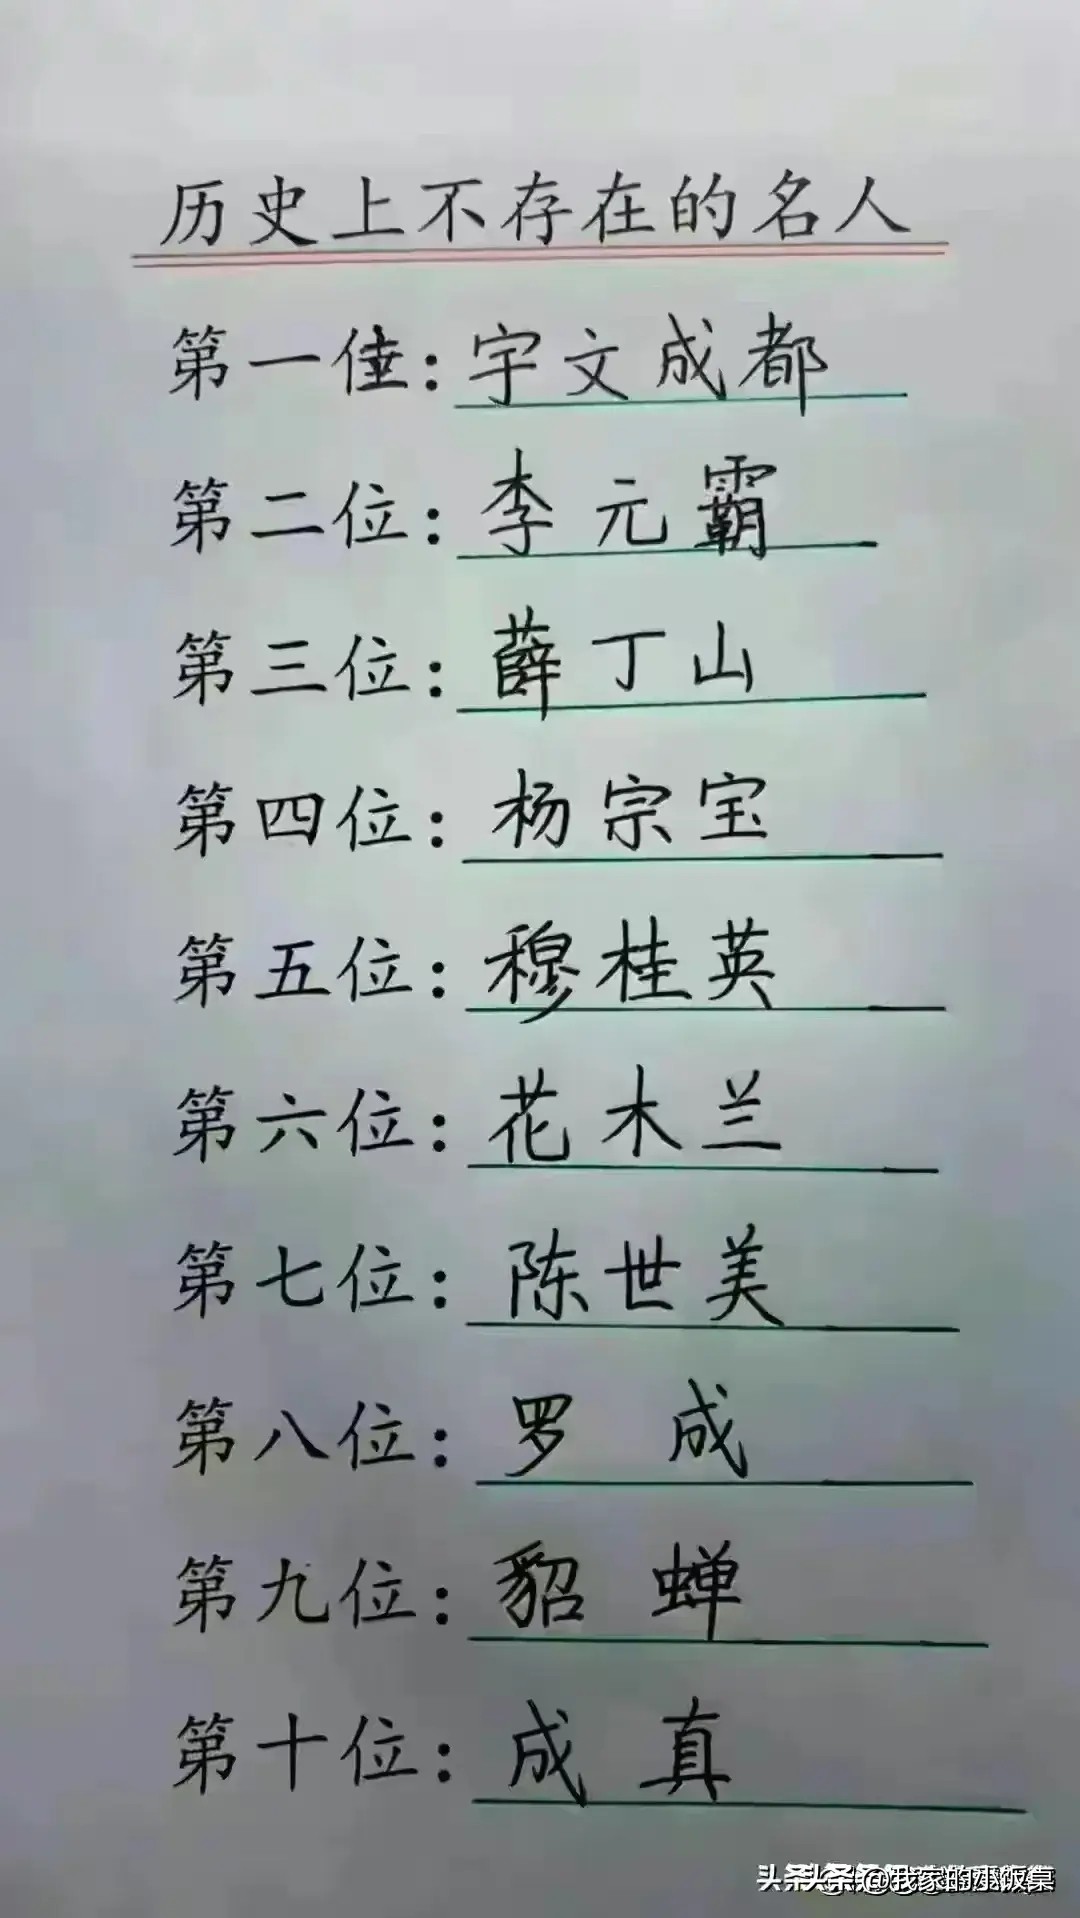 历史上不存在的名人
第一位：宇文成都
第二位：李元霸
第三位：薛丁山
第四位：杨宗宝
第五位：穆桂英
第六位：花木兰
第七位：陈世美
第八位：罗成
第九位：貂蝉
第十位：成真
头条 @我家的小饭桌